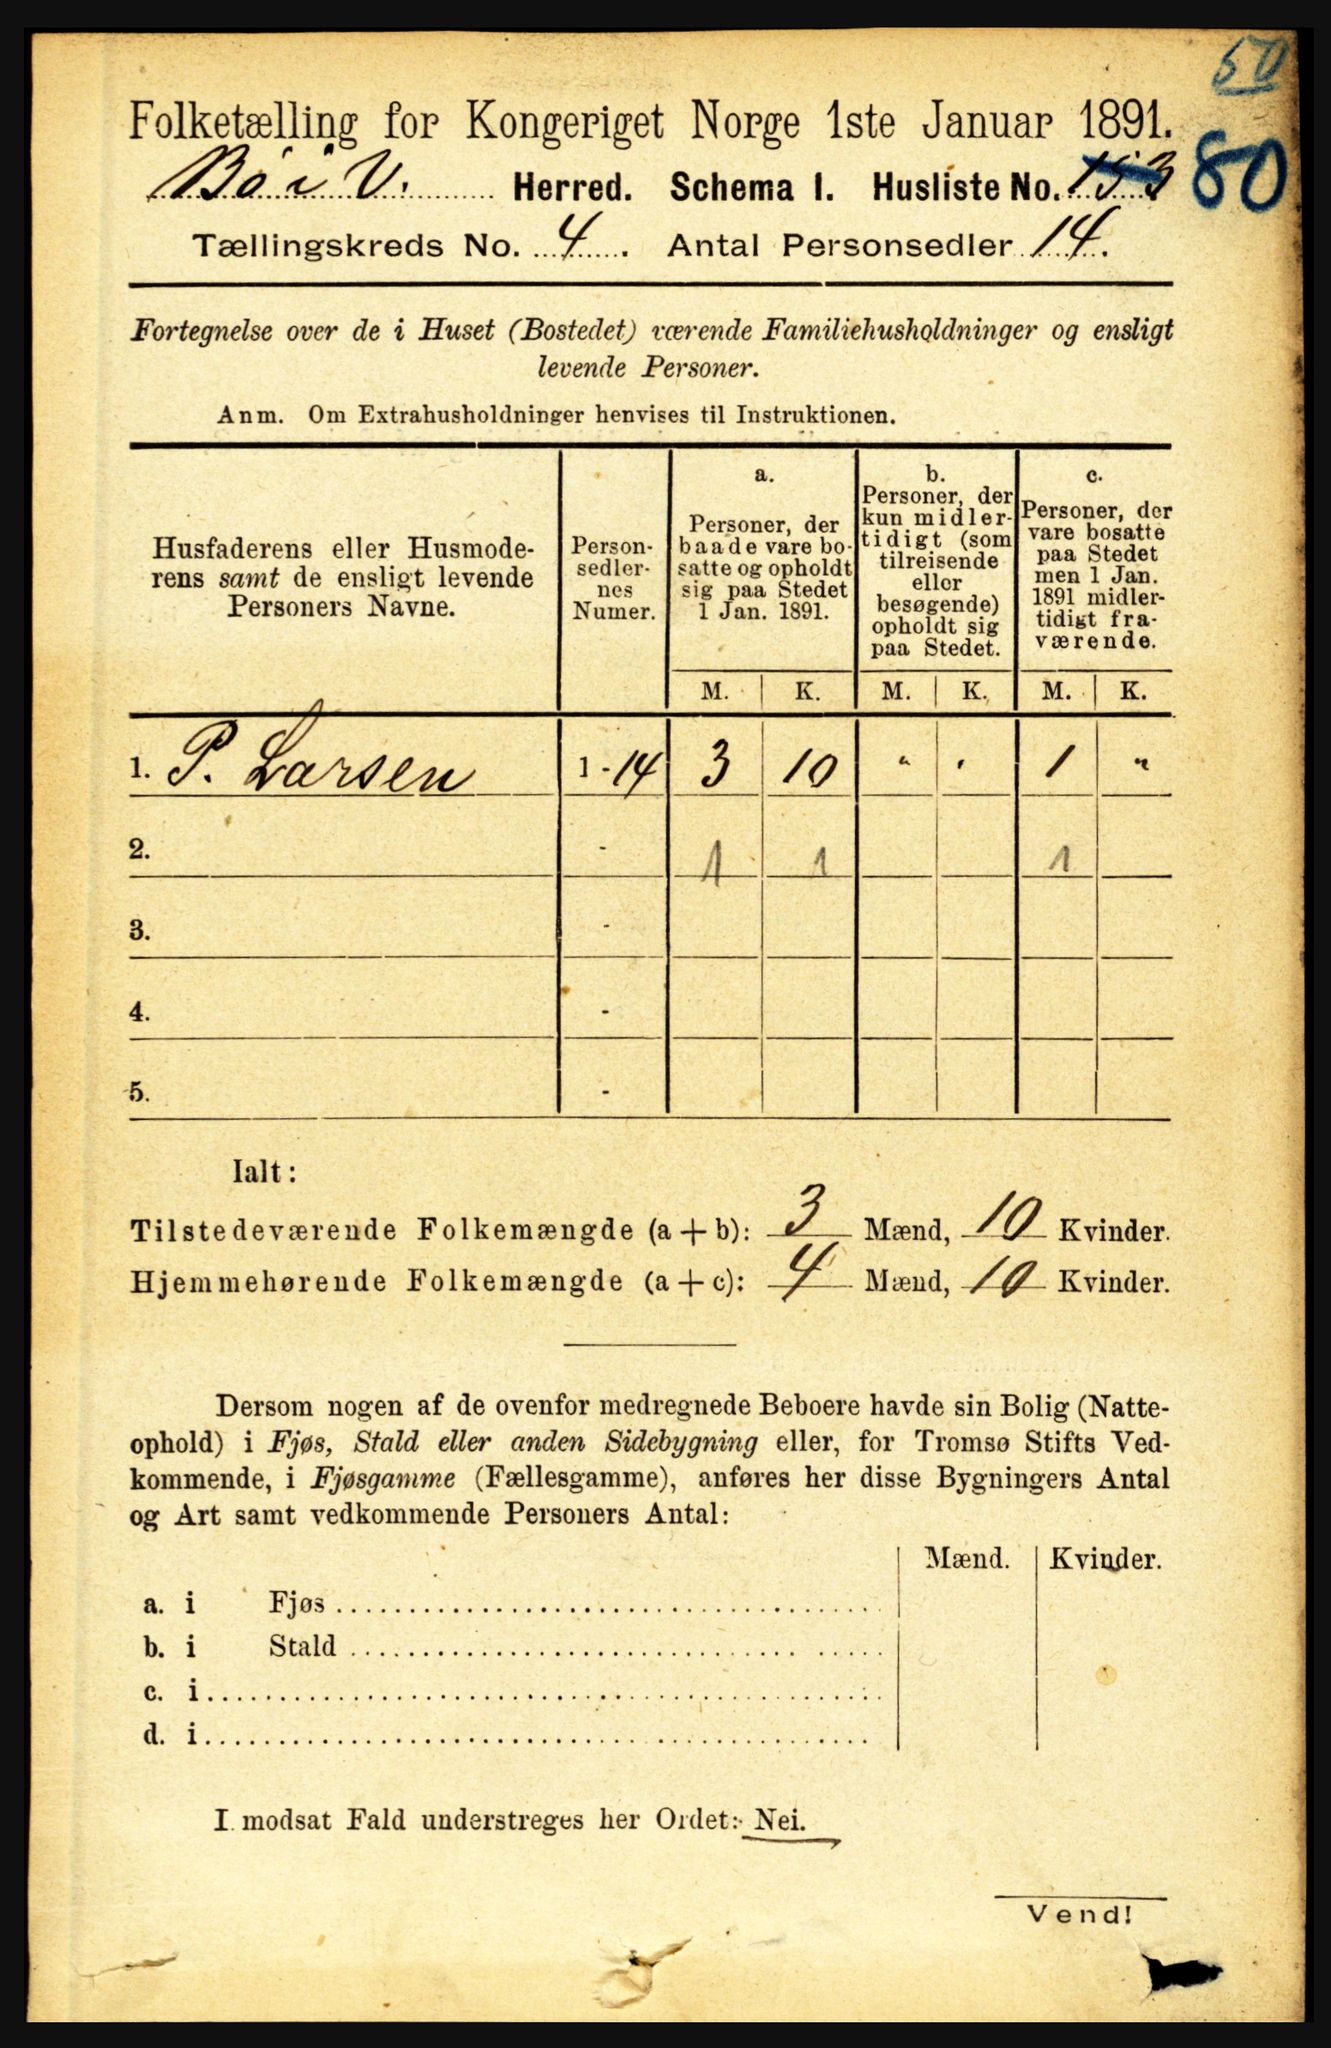 50
Folketælling for Kongeriget Norge 1ste Januar 1891.
Bö i V. Herred. Schema 1. Husliste No. 153 80
Tællingskreds No. 4. Antal Personsedler 14.
Fortegnelse over de i Huset (Bostedet) værende Familiehusholdninger og ensligt
levende Personer.
Anm. Om Extrahusholdninger henvises til Instruktionen.
Husfaderens eller Husmode-
rens samt de ensligt levende
Personers Navne.
Person-
sedler-
nes
Numer.
a.
Personer, der
baade vare bo-
satte og opholdt
sig paa Stedet
1 Jan. 1891.
b.
Personer, der
kun midler-
tidigt (som
tilreisende
eller
besøgende)
opholdt sig
paa Stedet.
c.
Personer, der
vare bosatte
paa Stedet
men 1 Jan.
1891 midler-
tidigt fra-
værende.
M. K. M. K. M. K.
1. P. Larsen 1 - 14 3 10 " " 1 "
2. - 1 1 1
3. -
4. -
5. -
Ialt:
Tilstedeværende Folkemængde (a + b): 3 Mænd, 10 Kvinder.
Hjemmehørende Folkemængde (a + c): 4 Mænd, 10 Kvinder.
Dersom nogen af de ovenfor medregnede Beboere havde sin Bolig (Natte-
ophold) i Fjøs, Stald eller anden Sidebygning eller, for Tromsø Stifts Ved-
kommende, i Fjøsgamme (Fællesgamme), anføres her disse Bygningers Antal
og Art samt vedkommende Personers Antal:
Mænd. Kvinder.
a. i Fjøs
b. i Stald
c. i
d. i
I modsat Fald understreges her Ordet: Nei.
Vend!